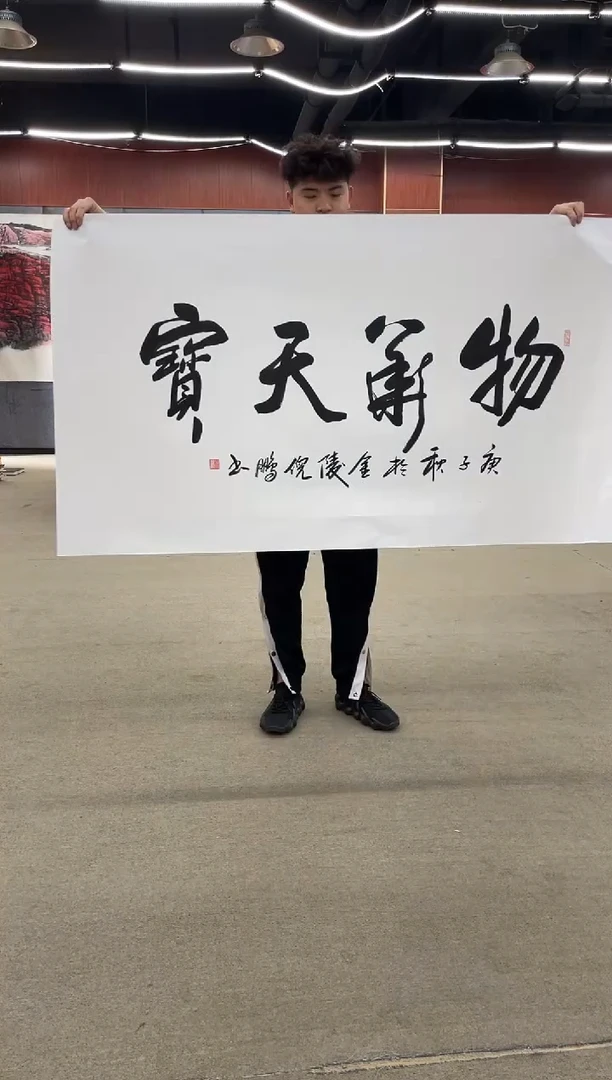 物華天寶
庚子秋於金陵倪鵬书